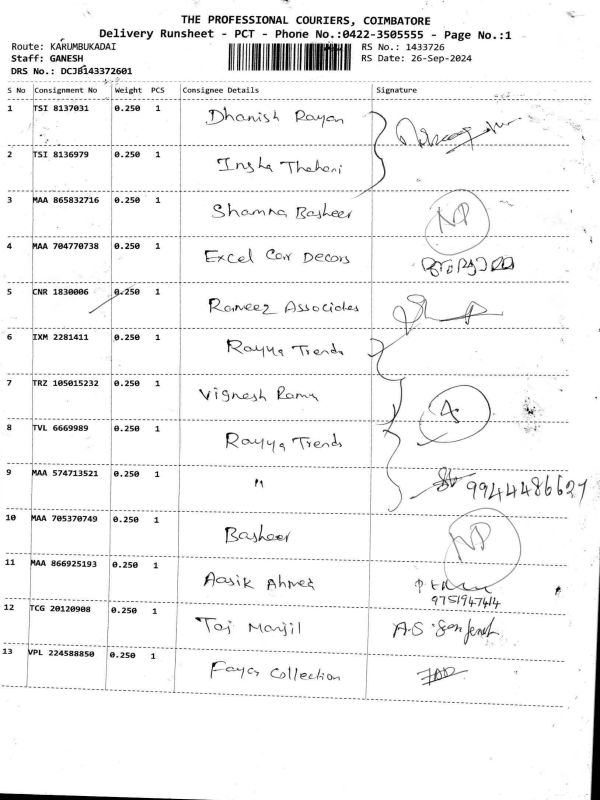 THE PROFESSIONAL COURIERS, COIMBATORE
Delivery Runsheet - PCT - Phone No.:0422-3505555 - Page No.:1
Route: KARUMBUKADAI
RS No.: 1433726
Staff: GANESH
RS Date: 26-Sep-2024
DRS No.: DCJB143372601
S No Consignment No Weight PCS Consignee Details Signature
1 TSI 8137031 0.250 1 Dhanish Rayan
2 TSI 8136979 0.250 1 Insha Thahani
3 MAA 865832716 0.250 1 Shamna Basheer NP
4 MAA 704770738 0.250 1 Excel Car Decors
5 CNR 1830006 0.250 1 Rameez Associates
6 IXM 2281411 0.250 1 Rayya Trends
7 TRZ 105015232 0.250 1 Vignesh Ramu A
8 TVL 6669989 0.250 1 Rayya Trends
9 MAA 574713521 0.250 1 " 9944486627
10 MAA 705370749 0.250 1 Basheer NP
11 MAA 866925193 0.250 1 Aasik Ahmed
9751947414
12 TCG 20120908 0.250 1 Taj Manjil A.S
13 VPL 224588850 0.250 1 Fayas Collection